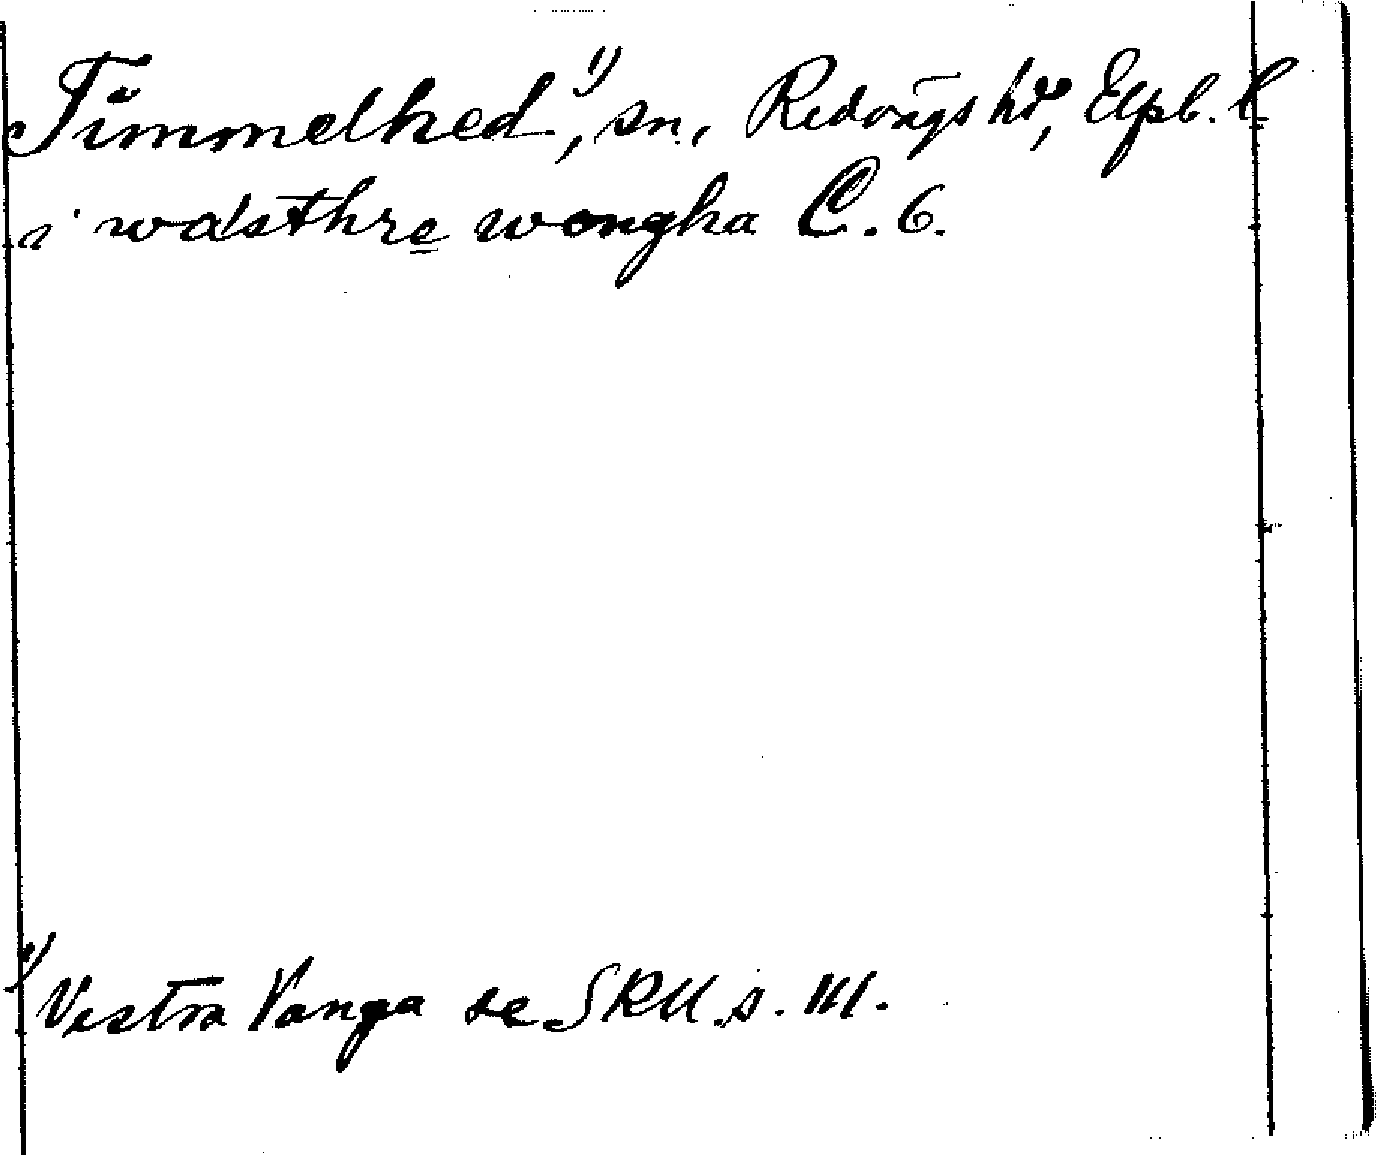 Timmelhed,¹⁾ sn, Redvägs hd, Elfsb. l
i wästhre wongha C. 6.
¹⁾ Vestra Vånga se SRU. s. 111.